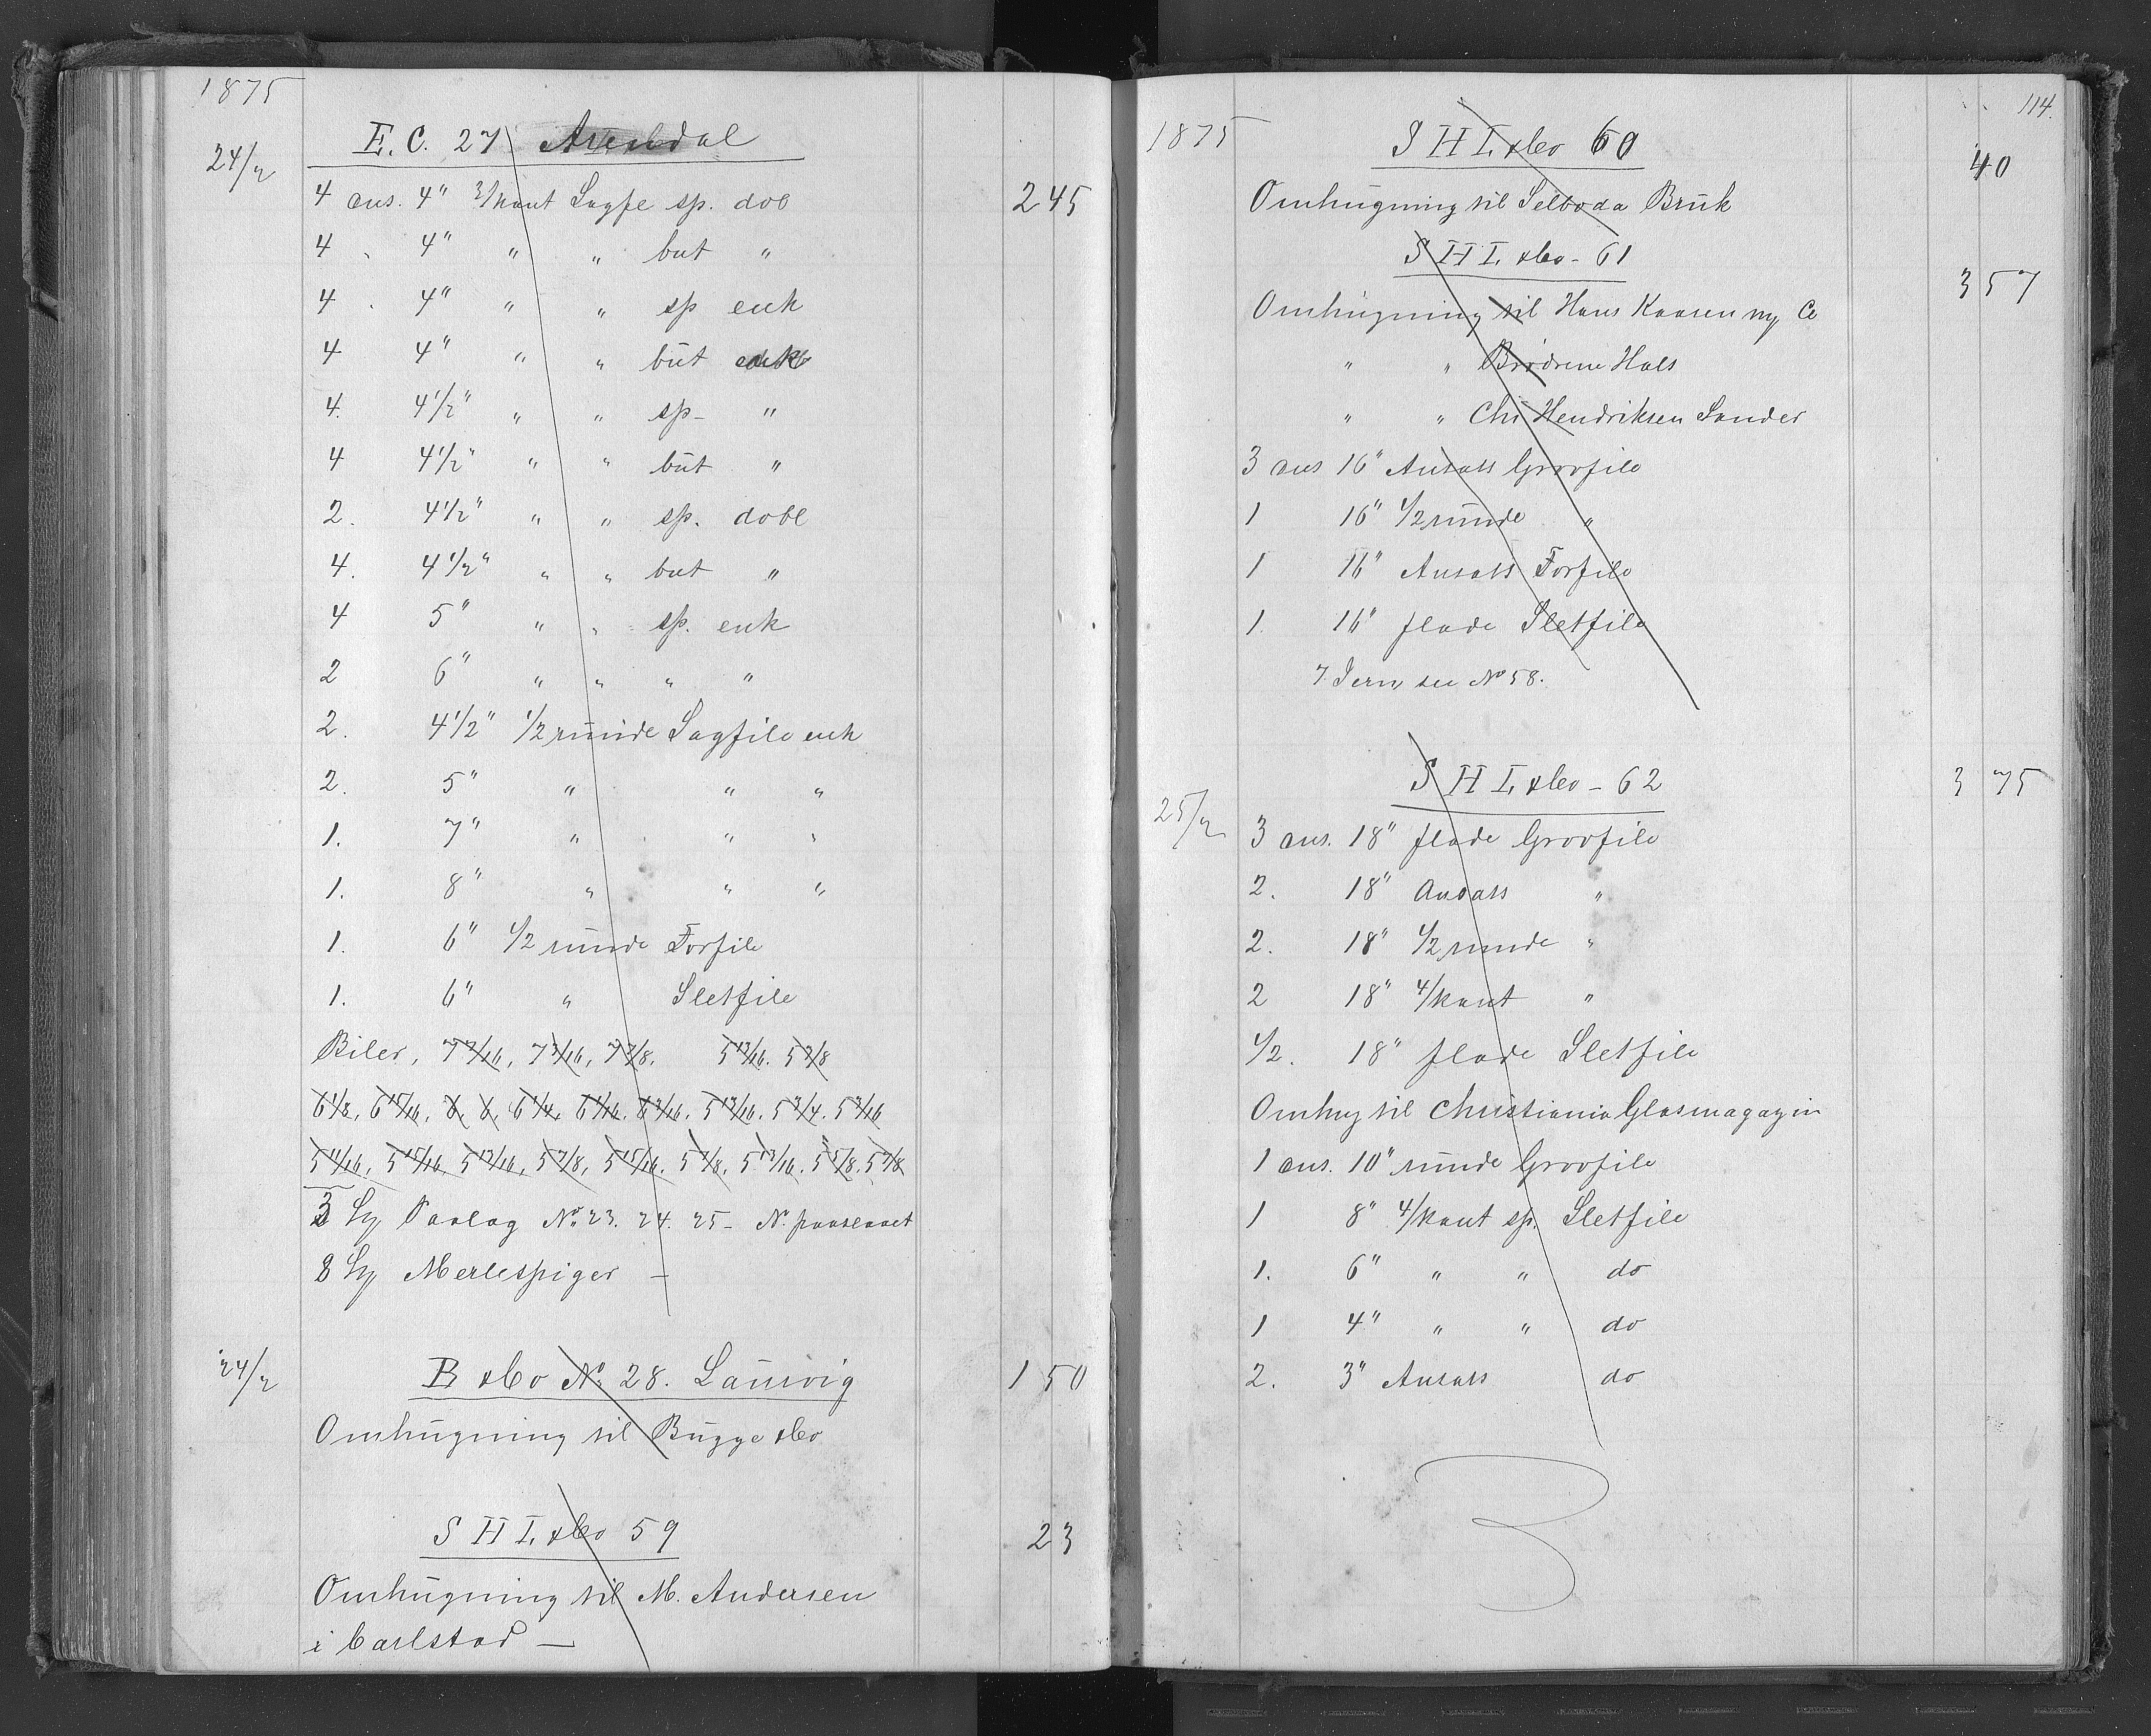 1875
24/2 E. C. 27 Arendal
4 dus. 4" 3/kant Sagfe sp. dob 2 45
4 . 4" " " but "
4 . 4" " " sp enk
4 4" " " but enk
4. 4 1/2" " " sp - "
4 4 1/2" " " but "
2. 4 1/2" " " sp. dobl
4. 4 1/2" " " but "
4 5" " " sp. enk
2 6" " " " "
2. 4 1/2" 1/2 runde Sagfile enk
2. 5" " " "
1. 7" " " "
1. 8" " " "
1. 6" 1/2 runde Forfile
1. 6" " Sletfile
Biler, 7 3/16, 7 3/16, 7 3/8. 5 13/16. 5 7/8
6 1/8, 6 15/16, 6, 6, 6 1/4, 6 1/16. 6 3/16. 5 13/16. 5 3/4. 5 3/16
5 11/16, 5 15/16, 5 13/16, 5 7/8, 5 15/16. 5 7/8, 5 13/16. 5 5/8. 5 7/8
3 Sy Paalag No. 23. 24. 25 - N. paaslaaet
8 Sy Merlespiger -
24/2 B & Co No. 28. Laurvig 1 50
Omhugning til Bugge & Co
S H I. & Co 59 23
Omhugning til M. Andersen
i Carlstad -
114.
1875 S H I. & Co 60 40
Omhugning til Selboda Bruk
S H I. & Co - 61 3 57
Omhugning til Hans Kaasen ny Co
" " Brødrene Hals
" " Chr Hendriksen Sander
3 dus 16" Ansats Grovfile
1 16" 1/2 runde "
1 16" Ansats Forfile
1. 16" flade Sletfile
7 Jern, see No 58.
S H I. & Co - 62 3 75
25/2 3 dus. 18" flade Grovfile
2. 18" Ansats "
2. 18" 1/2 runde "
2 18" 4/kant "
1/2. 18" flade Sletfile
Omhug til Christiania Glasmagazin
1 dus. 10" runde Grovfile
1 8" 4/kant sp. Sletfile
1. 6" " " do
1 4" " " do
2. 3" Ansats do